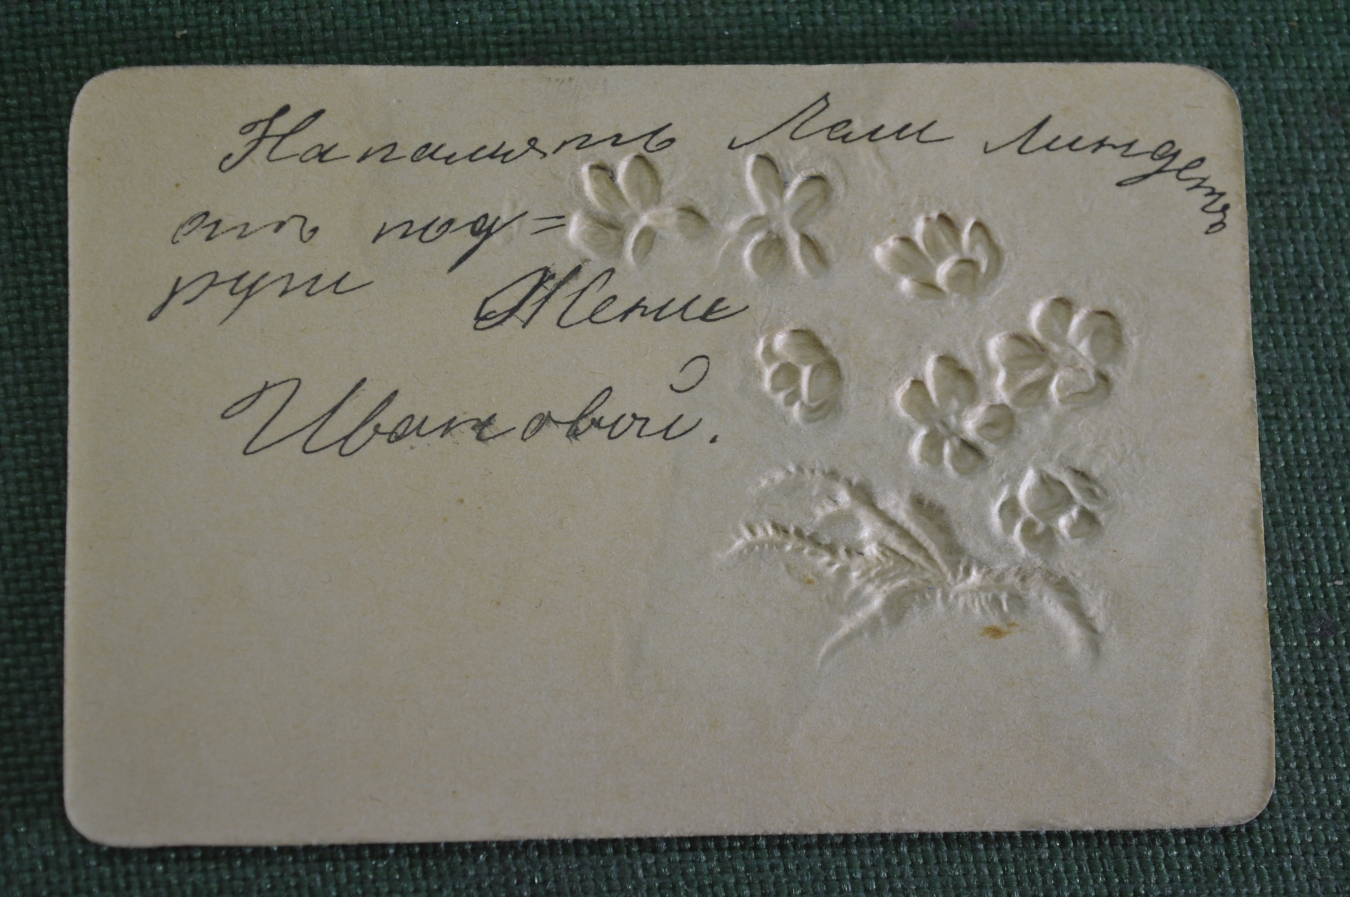 Напамять Лели Линдетъ
отъ под=
руги Жени
Ивановой.